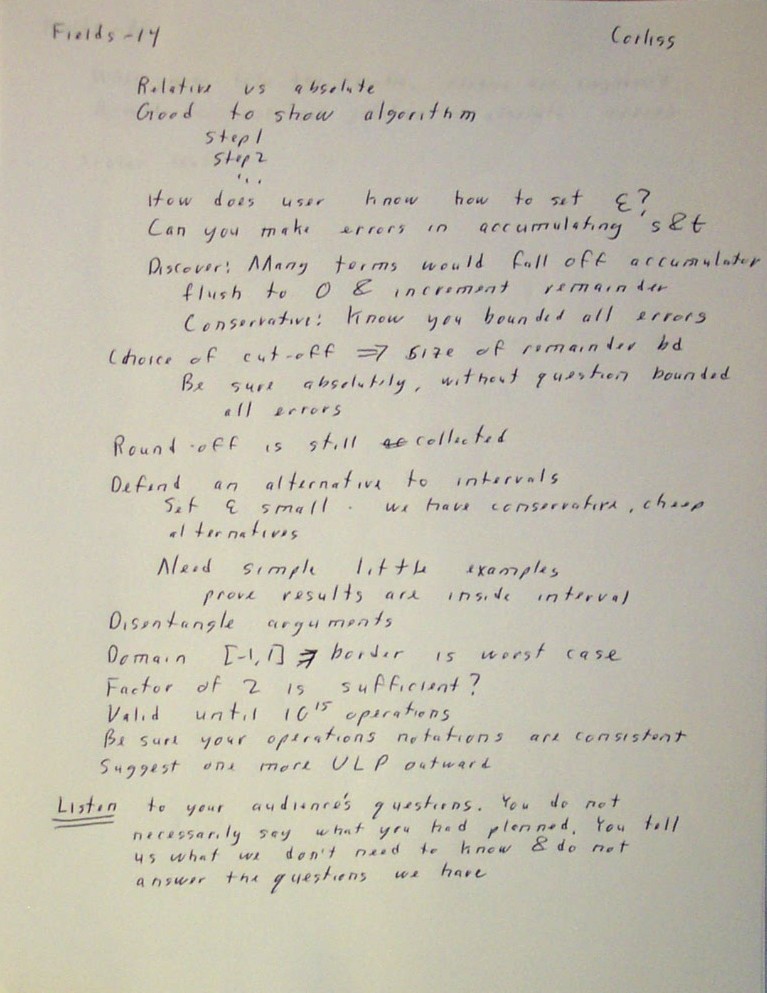 Fields-14 Corliss
Relative vs absolute
Good to show algorithm
Step1
Step2
...
How does user know how to set ε?
Can you make errors in accumulating s & t
Discover: Many terms would fall off accumulator
flush to 0 & increment remainder
Conservative: Know you bounded all errors
Choice of cut-off ⇒ size of remainder bd
Be sure absolutely, without question bounded
all errors
Round-off is still collected
Defend an alternative to intervals
Set ε small. we have conservative, cheap
alternatives
Need simple little examples
prove results are inside interval
Disentangle arguments
Domain [-1, 1] ⇒ border is worst case
Factor of 2 is sufficient?
Valid until 10¹⁵ operations
Be sure your operations notations are consistent
Suggest one more ULP outward
Listen to your audience's questions. You do not
necessarily say what you had planned. You tell
us what we don't need to know & do not
answer the questions we have